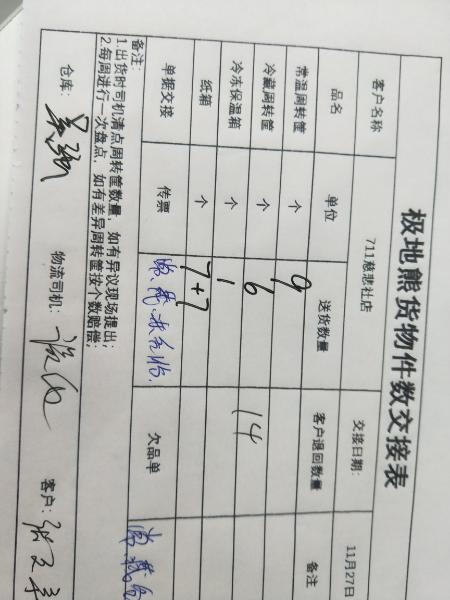 极地熊货物件数交接表
客户名称 711慈悲社店 交接日期: 11月27日
品名 单位 送货数量 客户退回数量 备注
常温周转筐 个 9
冷藏周转筐 个 6 14
冷冻保温箱 个 1
纸箱 个 7+7
单据交接 传票 欠品单
备注:
1.出货时司机清点周转筐数量，如有异议现场提出;
2.每周进行一次盘点，如有差异周转筐按个数赔偿;
仓库: 物流司机: 客户: